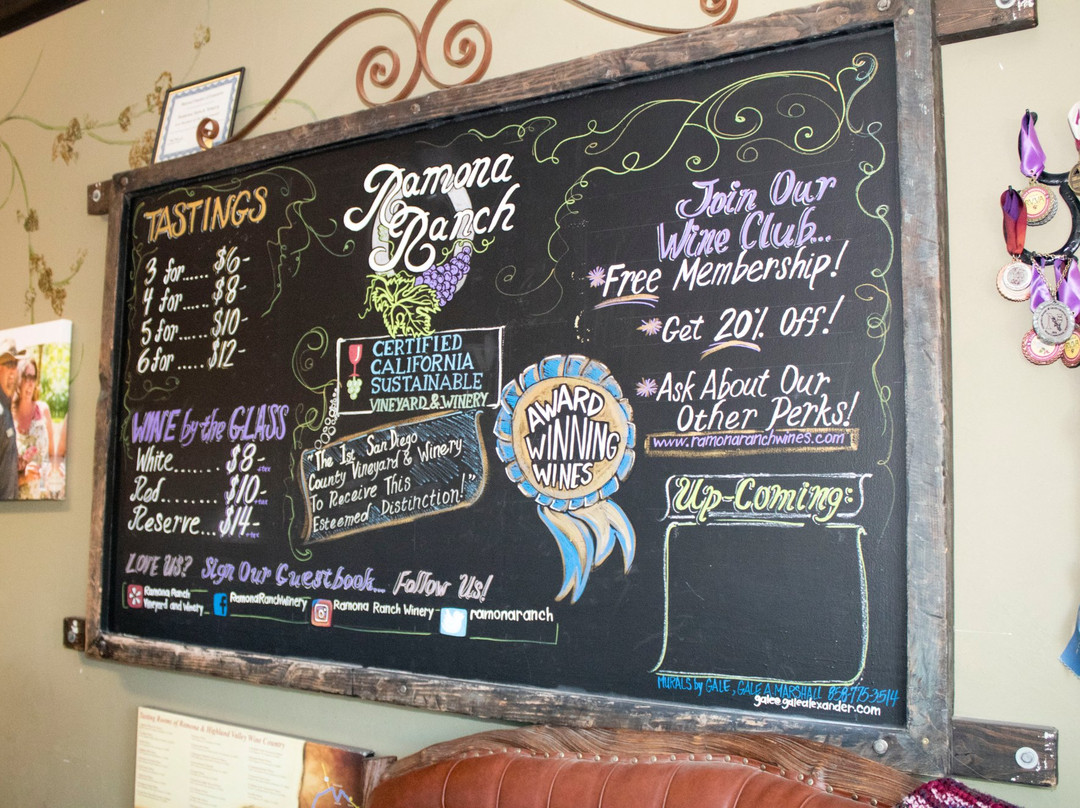 Ramona
Ranch
TASTINGS
3 for..... $6-
4 for..... $8-
5 for..... $10-
6 for ..... $12-
WINE by the GLASS
White....... $8-
Red......... $10-
Reserve... $14-
CERTIFIED
CALIFORNIA
SUSTAINABLE
VINEYARD & WINERY
"The 1st San Diego
County Vineyard & Winery
To Receive This
Esteemed Distinction!"
AWARD
WINNING
WINES
Join Our
Wine Club...
*Free Membership!
*Get 20% Off!
*Ask About Our
Other Perks!
www.ramonaranchwines.com
Up-Coming:
LOVE US? Sign Our Guestbook... Follow Us!
Ramona Ranch
Vineyard and Winery
RamonaRanchWinery
Ramona Ranch Winery
ramonaranch
MURALS by GALE, GALE A. MARSHALL 858-775-3514
galee.galealexander.com
Tasting Rooms of Ramona & Highland Valley Wine Country